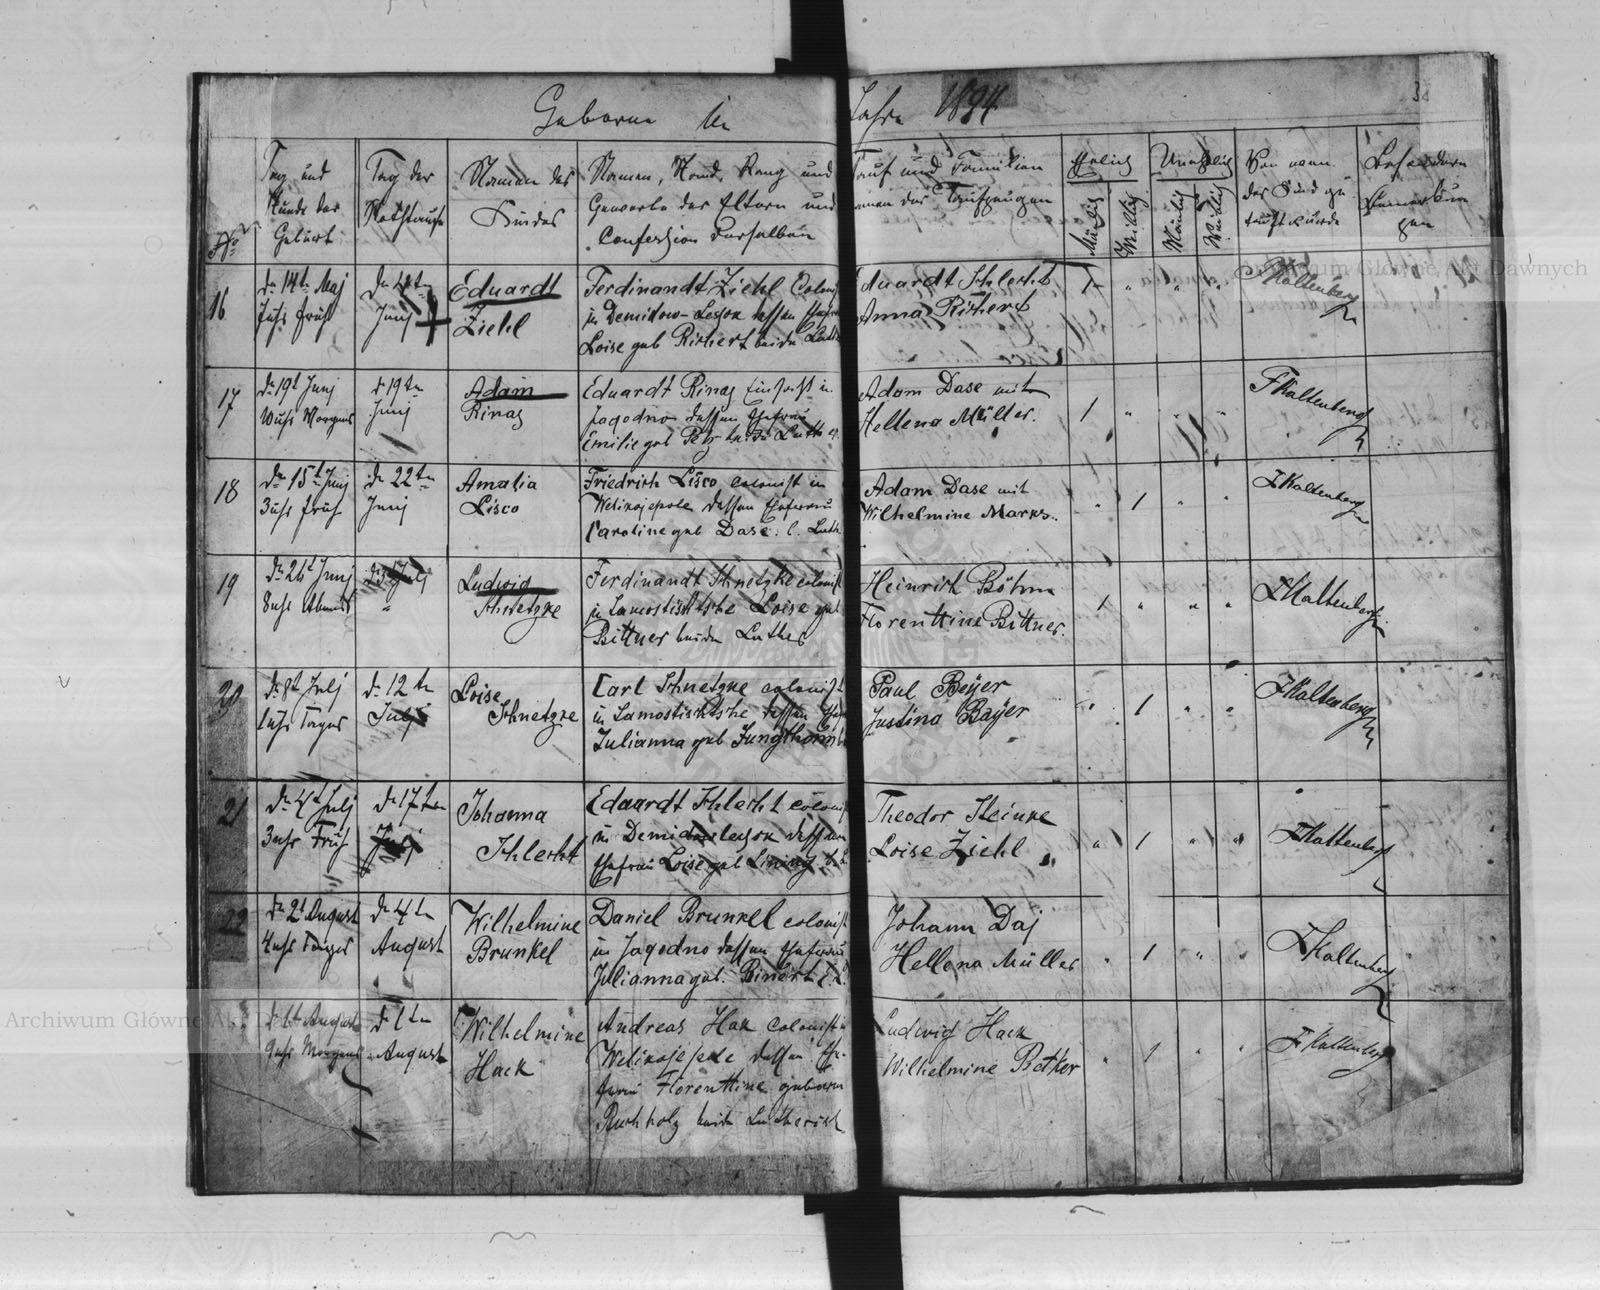 Geborne im Jahre 1894.
No
Tag und
Stunde der
Geburt
Tag der
Nothtaufe
Namen des
Kindes
Namen, Stand, Rang und
Gewerbe der Eltern und
Confession derselben
Tauf und Familien
namen der Taufzeugen
Ehelich
Mänlich
Weiblich
Unehelich
Mänlich
Weiblich
Von wem
das Kind ge
tauft wurde
Besondere
Bemerkun
gen
16
d. 14t Maj
7 uhr früh
Junj
Eduardt
Ziehl
Ferdinandt Ziehl Colonist
in Demidow-Leson dessen Ehefrau
Loise geb Richert beide Luth
Eduardt Schlecht
Anna Richert
1
F Kaltenberg
17
d. 19t Junj
Uhr Morgens
d 19tn
Junj
Adam
Rinas
Eduardt Rinas Einsaht in
Jagodno dessen Ehefrau
Emilie geb Petz beide Luther
Adam Dase mit
Hellena Müller.
1
F Kaltenberg
18
dn 15t Junj
3 uhr früh
dn 22tn
Junj
Amalia
Lisco
Friedrich Lisco colonist in
Welikojepole dessen Ehefrau
Caroline geb Dase. b. Luth
Adam Dase mit
Wilhelmine Marks.
1
F Kaltenberg
19
dn 26t Junj
8 uhr Abends
Julj
Ludwig
Schnetzke
Ferdinandt Schnetzke colonist
in Samostischtshe Loise geb
Bittner beide Luther
Heinrich Böhm
Florenttine Bittner.
1
F Kaltenberg
20
dn 8t Julj
1 uhr Tages
dn 12tn
Julj
Loise
Schnetzke
Carl Schnetzke colonist
in Samostischtshe dessen Ehefr
Julianna geb Jungthorn
Paul Beyer
Justina Bayer
1
F Kaltenberg
21
dn 4t Julj
3 uhr Früh
dn 17tn
Julj
Johanna
Schlecht
Eduardt Schlecht colonist
in Demidowleson dessen
Ehefrau Loise geb Lining. b. L.
Theodor Steinke
Loise Ziehl
1
F Kaltenberg
22
dn 2t August
4 uhr Tages
dn 4tn
August
Wilhelmine
Brunkel
Daniel Brunkel colonist
in Jagodno dessen Ehefrau
Julianna geb. Rinert b. L.
Johann Daj
Hellena Müller
1
F Kaltenberg
August
9 uhr Morgens
August
Wilhelmine
Hack
Andreas Hak Colonist in
Welikojepole dessen Ehe-
frau Florenttine geboren
Buchholz beide Lutherisch
Ludwig Hack
Wilhelmine Betker
1
F Kaltenberg
Archiwum Główne Akt Dawnych
Archiwum Główne Akt Dawnych